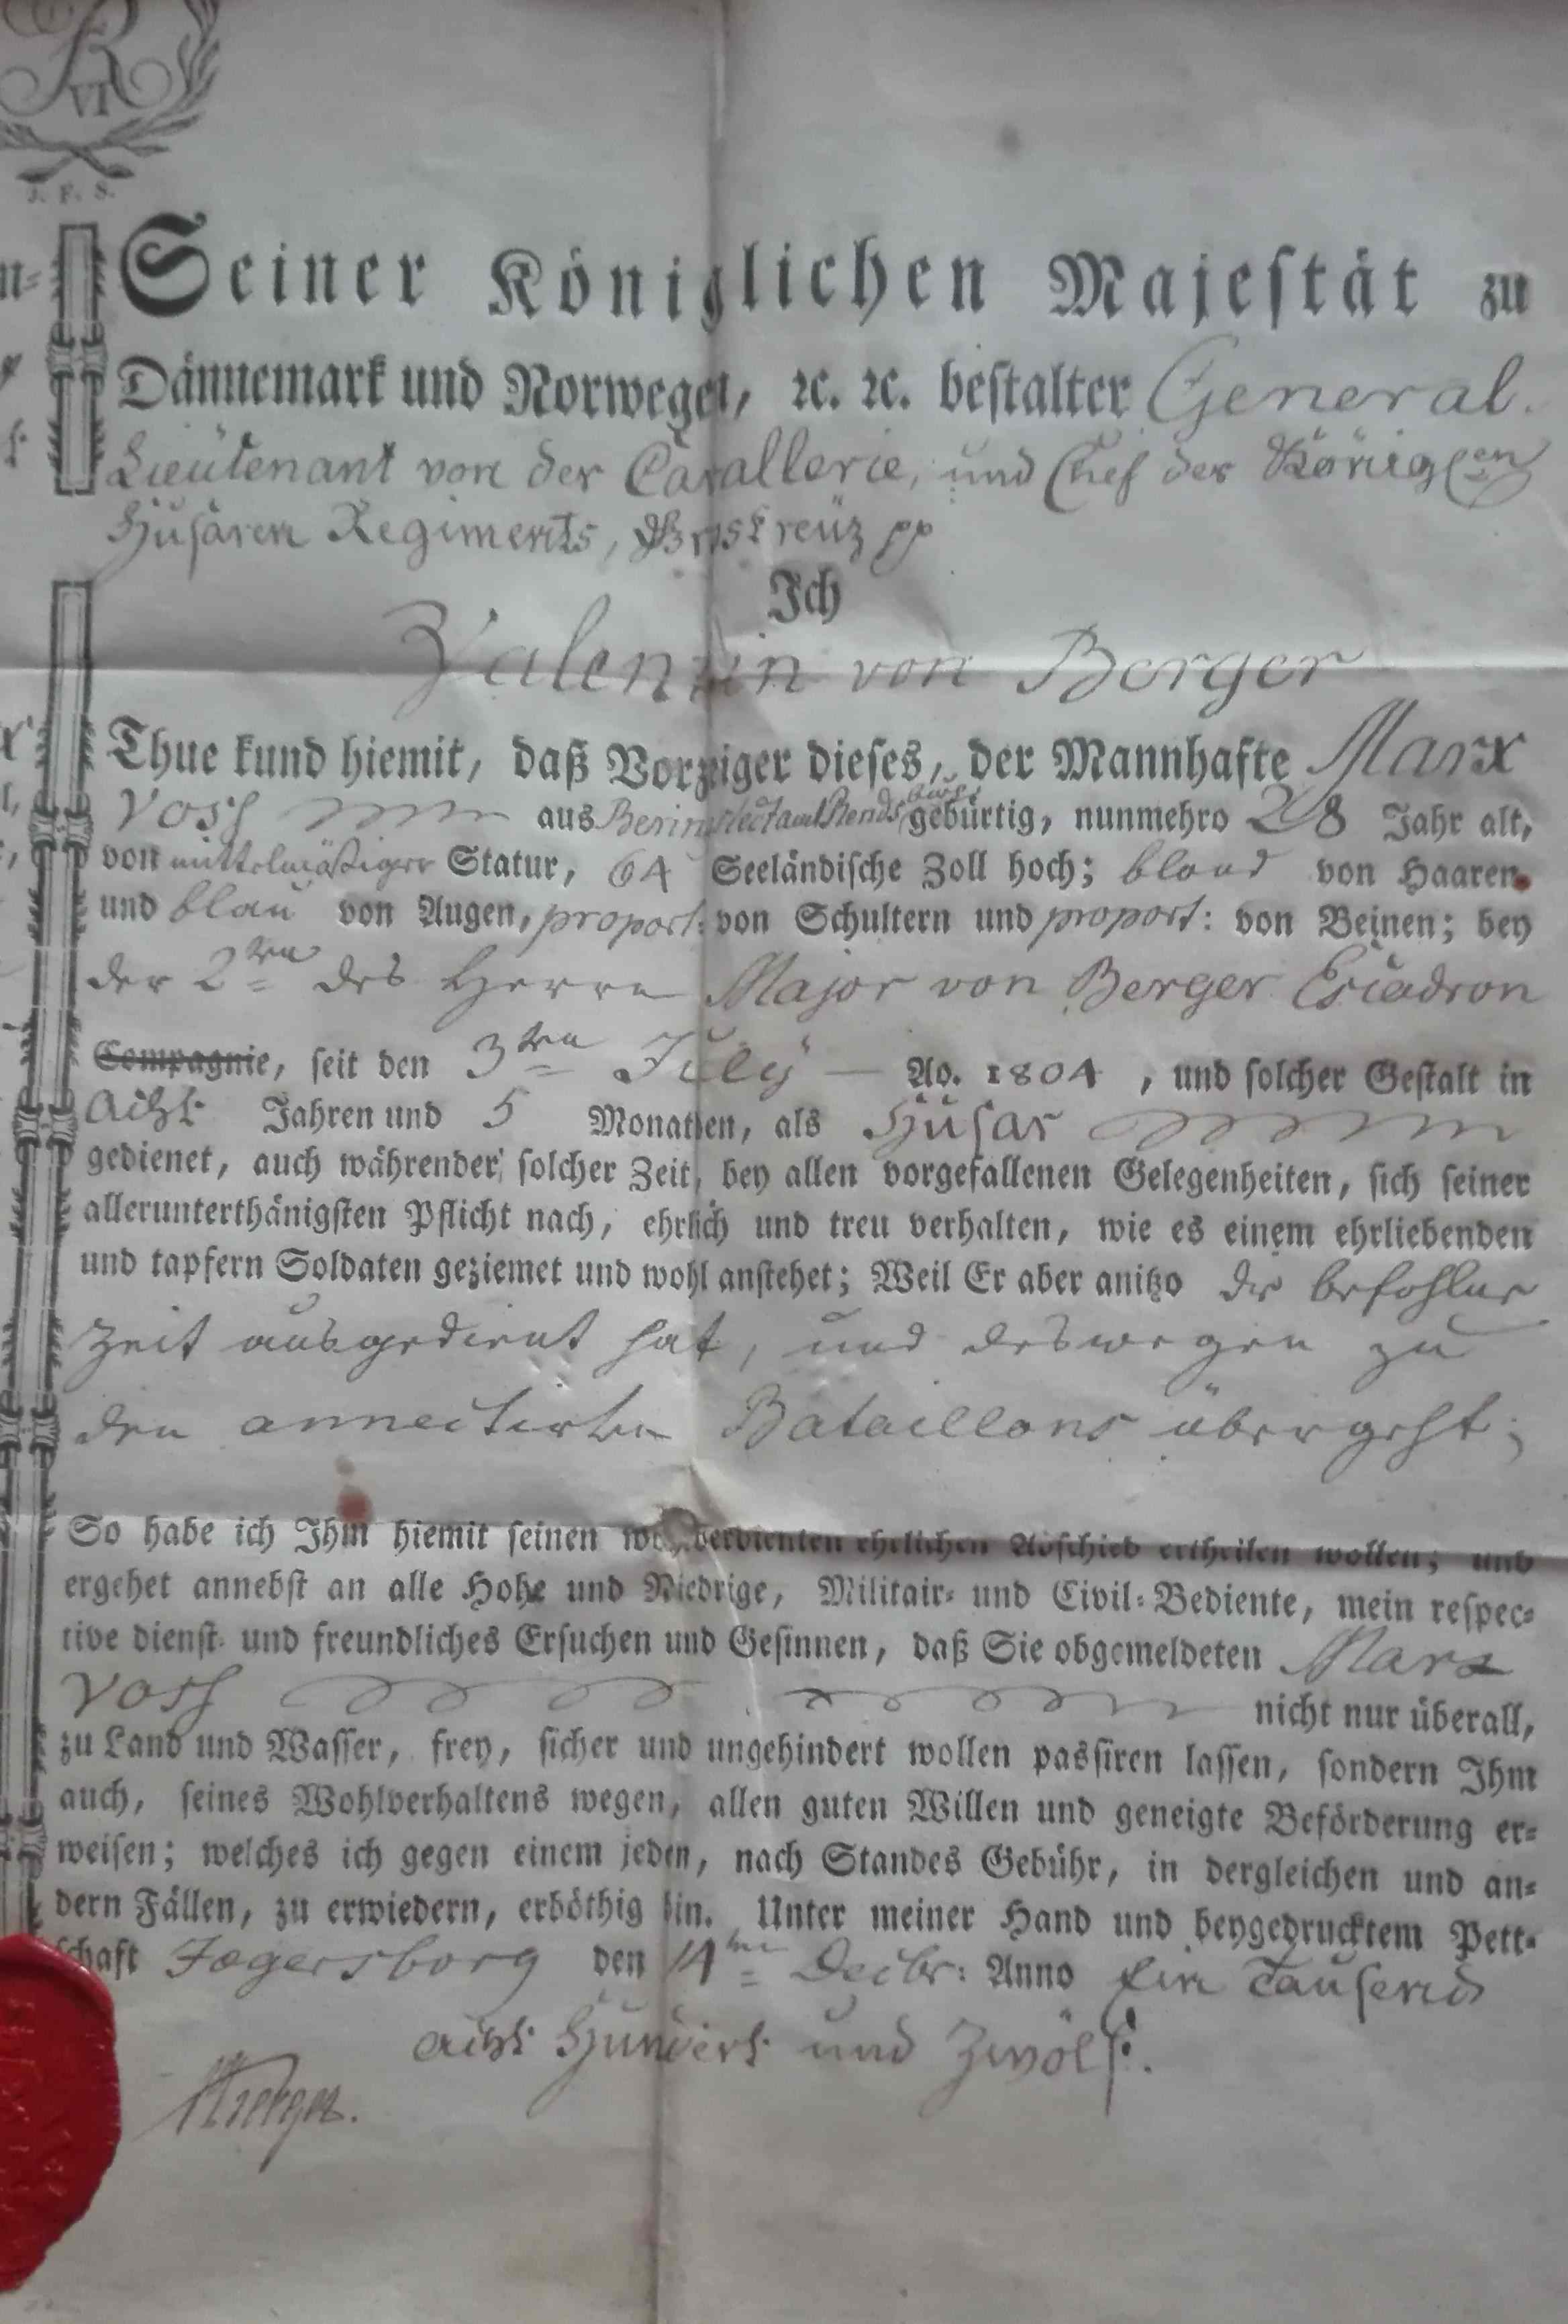 R
VI
J. F. S.
Seiner Königlichen Majestät zu
Dännemark und Norwegen, ꝛc. ꝛc. bestalter General.
Lieutenant von der Cavallerie, und Chef des Königlen
Husaren Regiments, Groskreuz pp
Ich
Valentin von Berger
Thue kund hiemit, daß Vorzeiger dieses, der Mannhafte Marx
Vosz aus gebürtig, nunmehro 28 Jahr alt,
von mittelmäßiger Statur, 64 Seeländische Zoll hoch; bland von Haaren
und blau von Augen, proport: von Schultern und proport: von Beinen; bey
der 2ten des Herrn Major von Berger Escadron
Compagnie, seit den 3ten July — Ao. 1804 , und solcher Gestalt in
Acht Jahren und 5 Monathen, als Husar
gedienet, auch währender solcher Zeit, bey allen vorgefallenen Gelegenheiten, sich seiner
allerunterthänigsten Pflicht nach, ehrlich und treu verhalten, wie es einem ehrliebenden
und tapfern Soldaten geziemet und wohl anstehet; Weil Er aber anitzo die befohlne
Zeit ausgedient hat, und deswegen zu
den annectirten Bataillons übergeht;
So habe ich Ihm hiemit seinen wohlverdienten ehrlichen Abschied ertheilen wollen; und
ergehet annebst an alle Hohe und Niedrige, Militair- und Civil-Bediente, mein respec-
tive dienst- und freundliches Ersuchen und Gesinnen, daß Sie obgemeldeten Marx
Vosz nicht nur überall,
zu Land und Wasser, frey, sicher und ungehindert wollen passiren lassen, sondern Ihm
auch, seines Wohlverhaltens wegen, allen guten Willen und geneigte Beförderung er-
weisen; welches ich gegen einem jeden, nach Standes Gebühr, in dergleichen und an-
dern Fällen, zu erwiedern, erböthig bin. Unter meiner Hand und beygedrucktem Pett-
schaft Jægersborg den 14ten Decbr: Anno Ein Tausend
Acht Hundert und Zwölf.